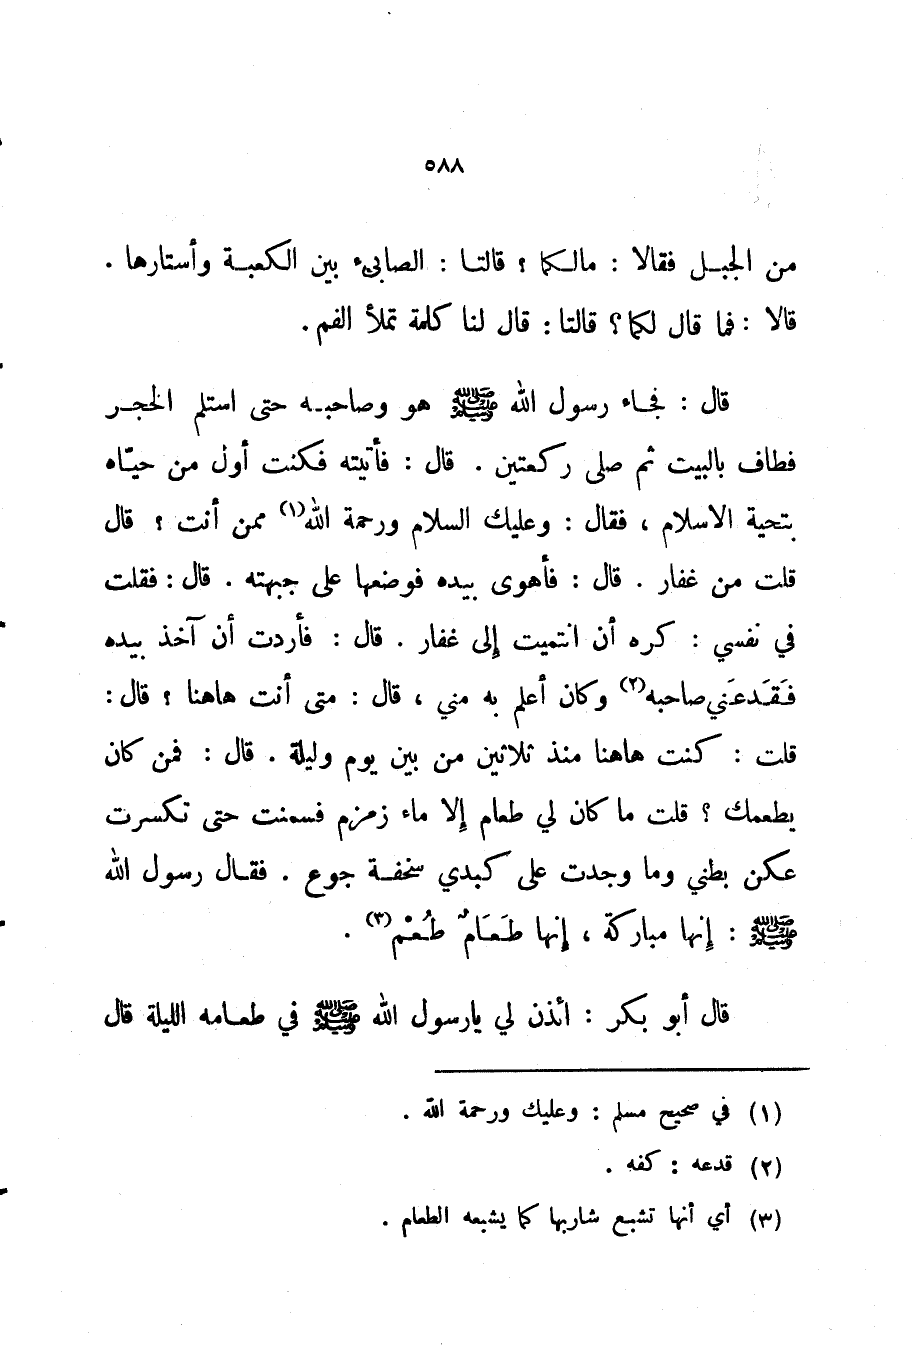 ٥٨٨
من الجبـل فقالا : مالـكما ؟ قالتـا : الصابىء بين الكعبـة وأستارها .
قالا : فما قال لكما؟ قالتا : قال لنا كلمة تملأ الفم .
قال : فجـاء رسول الله ﷺ هو وصاحبـه حتى استلم الحجـر
فطاف بالبيت ثم صلى ركعتين . قال : فأتيته فكنت أول من حيّاه
بتحية الاسلام ، فقال : وعليك السلام ورحمة الله(١) ممن أنت ؟ قال
قلت من غفار . قال : فأهوى بيده فوضعها على جبهته . قال : فقلت
في نفسي : كره أن انتميت إلى غفار . قال : فأردت أن آخذ بيده
فَقَدعَني صاحبه(٢) وكان أعلم به مني ، قال : متى أنت هاهنا ؟ قال :
قلت : كنت هاهنا منذ ثلاثين من بين يوم وليلة . قال : فمن كان
يطعمك ؟ قلت ما كان لي طعام إلا ماء زمزم فسمنت حتى تكسرت
عكن بطني وما وجدت على كبدي سخفـة جوع . فقـال رسول الله
ﷺ : إنها مباركة ، إنها طَعَامُ طُعْم(٣) .
قال أبو بكر : ائذن لي يارسول الله ﷺ في طعـامه الليلة قال
(١) في صحيح مسلم : وعليك ورحمة الله .
(٢) قدعه : كفه .
(٣) أي أنها تشبـع شاربها كما يشبعه الطعام .